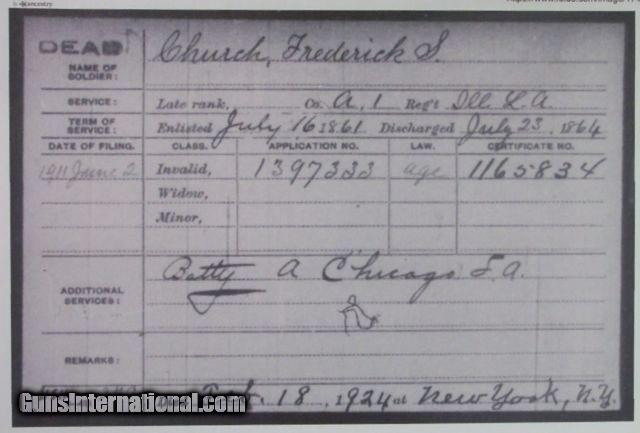 ancestry
DEAD
NAME OF SOLDIER:
Church, Frederick S.
SERVICE:
Late rank, Co. A, 1 Reg't Ill. L. A.
TERM OF SERVICE:
Enlisted July 16 1861 Discharged July 23, 1864
DATE OF FILING. CLASS. APPLICATION NO. LAW. CERTIFICATE NO.
1911 June 2 Invalid, 1397333 age 1165834
Widow,
Minor,
ADDITIONAL SERVICES:
Batty A Chicago L.A.
REMARKS:
18, 1924 at New York, N.Y.
GunsInternational.com